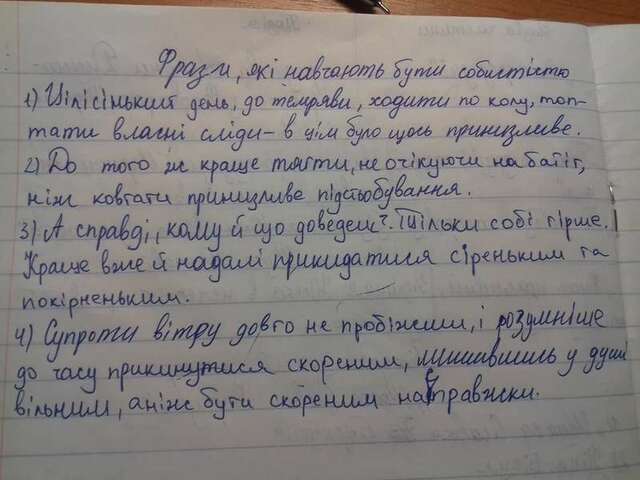 Фрази, які навчають бути особистістю
1) Цілісінький день, до темряви, ходити по колу, топ-
тати власні сліди – в цім було щось принизливе.
2) До того ж краще тягти, не очікуючи на батіг,
ніж ковтати принизливе підстьобування.
3) А справді, кому й що доведеш? Тільки собі гірше.
Краще вже й надалі прикидатися сіреньким та
покірненьким.
4) Супроти вітру довго не пробіжиш, і розумніше
до часу прикинутися скореним, лишившись у душі
вільним, аніж бути скореним насправжки.